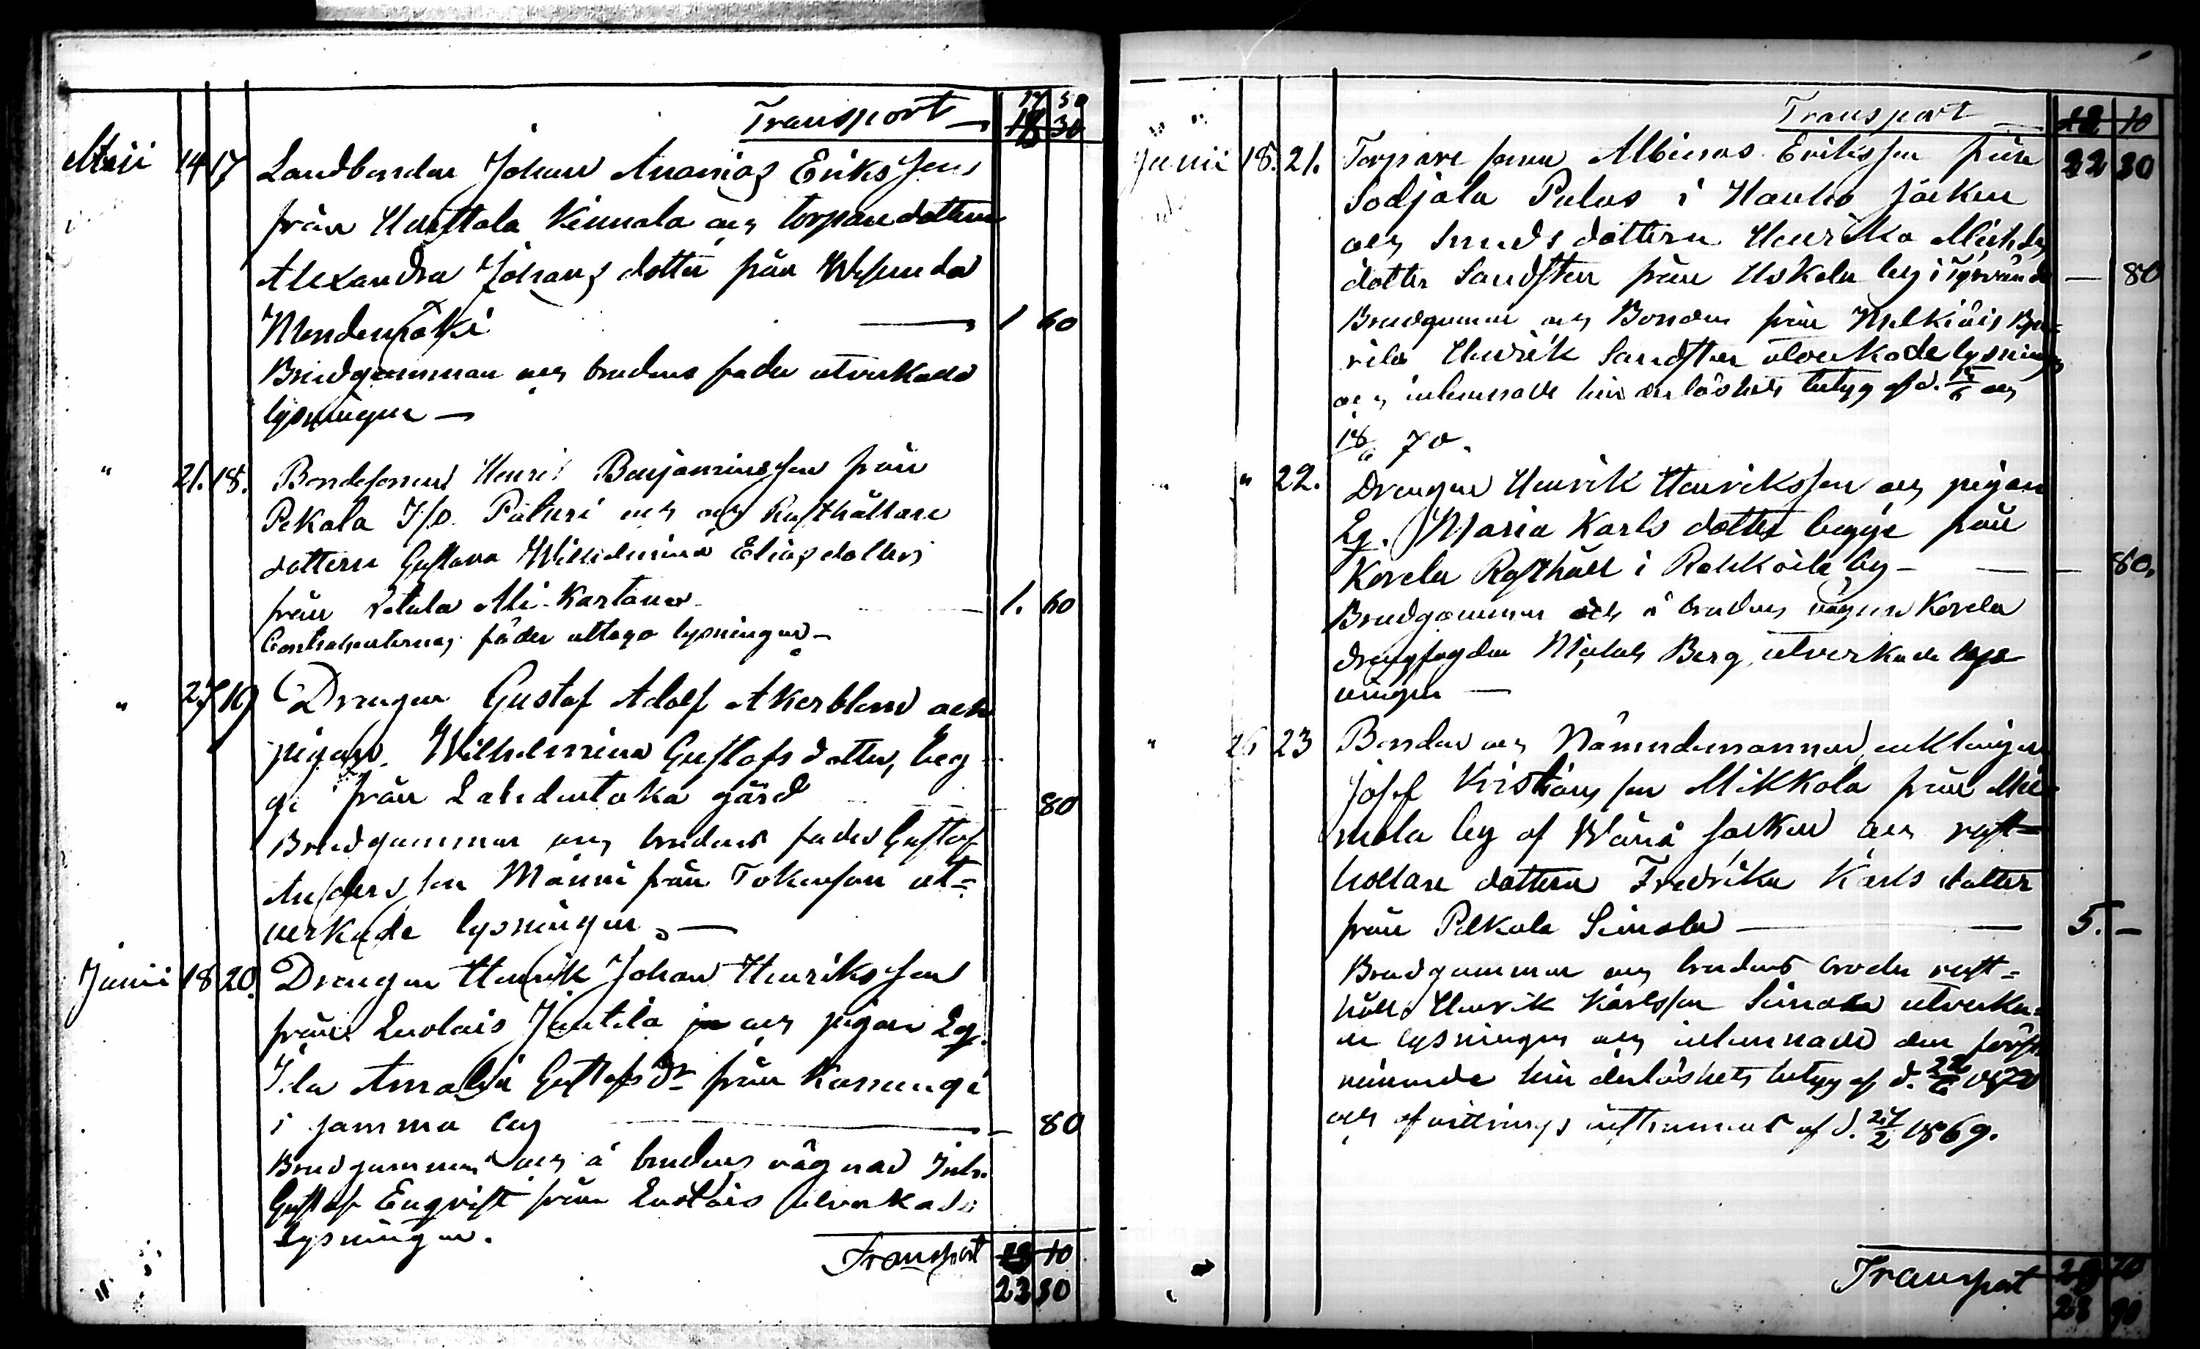 Transport — 17 50
18 30
Maii 14 17 Landbonden Johan Ananias Eriksson
från Huittola Kinnala och torparedottern
Alexandra Johans dotter från Wesunda
Mendenpäki — 1 60
Brudgumman och brudens fader utverkade
lysningen —
" 21. 18. Bondesonen Henrik Benjaminsson från
Pekola I/o Palvri och Rusthållare
dottern Gustava Wilhelmina Eliasdotter
från Retula Ali-Kartano — 1. 60
Contrahenternas fäder uttogo lysningen —
" 27 19 Drengen Gustaf Adolf Akerblom och
pigan Wilhelmina Gustafsdotter, beg-
ge från Lahdentaka gård — 80
Brudgumman och brudens fader Gustaf
Andersson Männi från Tokerson ut=
verkade lysningen —
Junii 18 20. Drengen Henrik Johan Henriksson
från Luolais Jantila och pigan Eg.
Ila Amalia Gustafsdr från
i samma by — 80
Brudgumman och å brudens vägnar Inh.
Gustaf Enqvist från Luolais utverkade
lysningen.
Transport 18 10
23 30
Transport — 18 10
Junii 18. 21. Torpare sonen Albinus Eriksson från 22 30
Sodjala Pulus i Hauho socken
och smedsdottern Henrika Michels
dotter Sandsten från Uskela by i Tyrvändö — 80
Brudgumman och Bonden från
Henrik Sandsten utverkade lysningen
och inlemnade hinderlöshets betyg af d. och
18/6 70.
" " 22. Drengen Henrik Henriksson och pigan
Eg. Maria Karls dotter begge från
Korela Rusthåll i Rahkoila by — 80.
Brudgumman och å brudens vägnar Korela
drengfogden Berg utverkade lys
ningen —
" 26 23 Bonden och Nämndemannen, enklingen
Josef Kristiansson Mikkola från Mie-
mola by af Wånå socken och rust=
hållare dottern Fredrika Karls dotter
från Pelkola Simola — 5. —
Brudgumman och brudens broder rust=
håll. Henrik Karlsson Simola utverka-
de lysningen och inlemnade den först
nämnde hinderlöshets betyg af d. 22/6 1870
och afvittrings instrument af d. 27/2 1869.
Transport 28 10
28 90